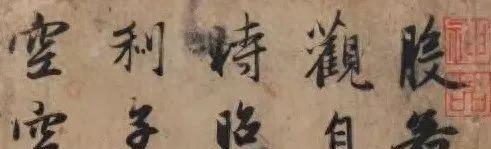 神品
般若
觀自
時照
利子
空空